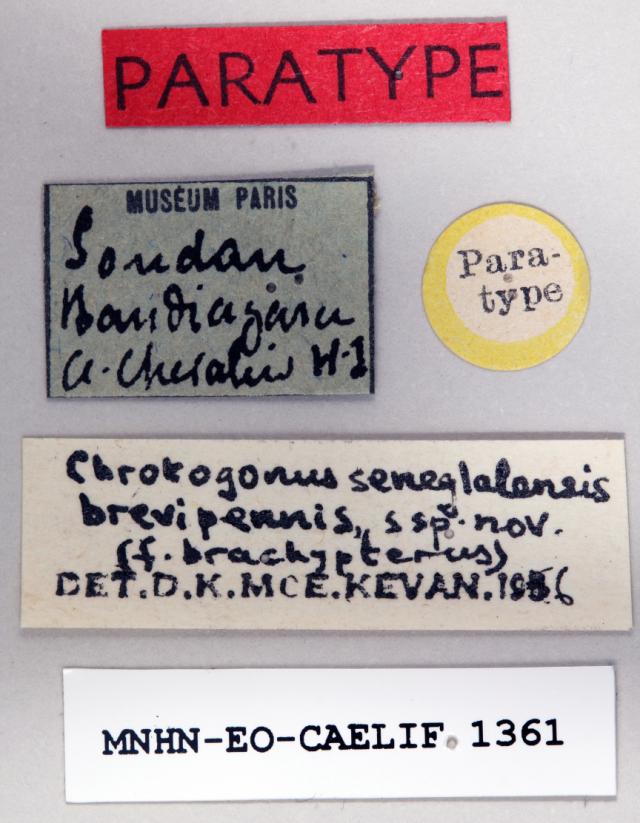 PARATYPE
MUSÉUM PARIS
Soudan
Bandiagara
A. Chevalier
Para-
type
Chrotogonus seneglalensis
brevipennis, ssp. nov.
(f. brachypterus)
DET. D. K. MCE. KEVAN. 1956
MNHN-EO-CAELIF 1361